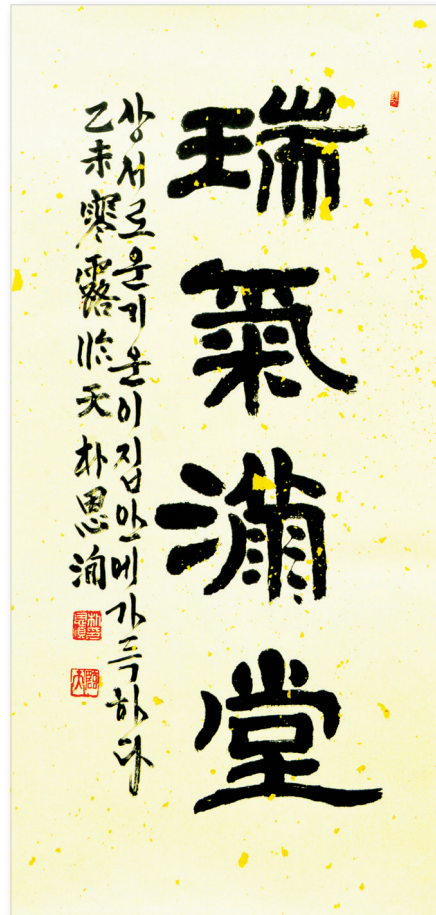 瑞氣滿堂
상서로운기운이집안에가득하다
乙未寒露臨天朴思洵